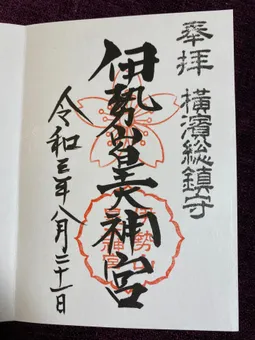 奉拝
横濱総鎮守
伊勢山皇大神宮
令和三年八月二十一日
伊勢山
皇大神宮